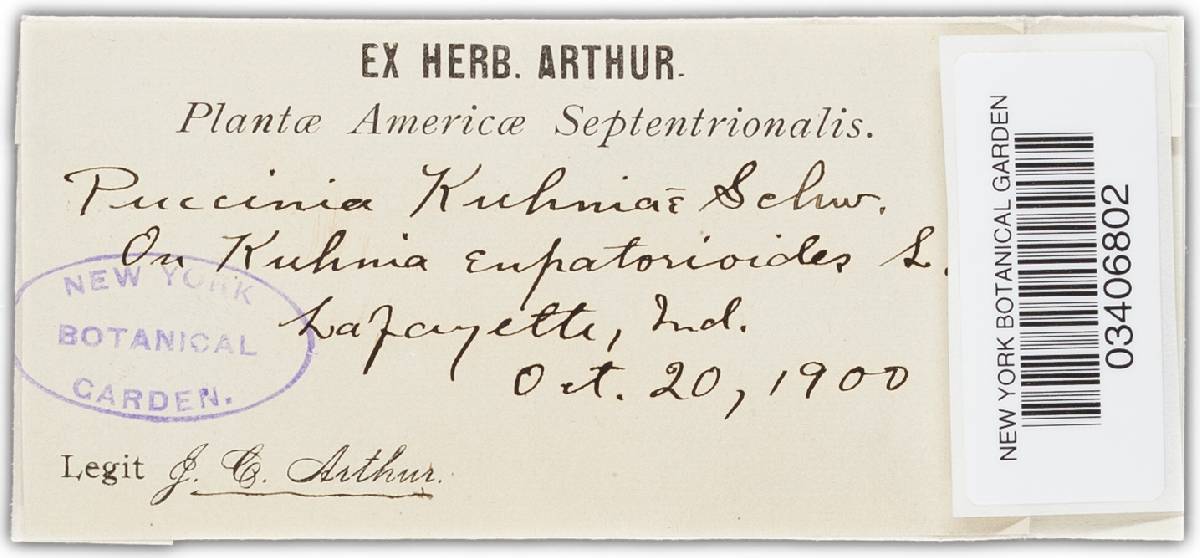 EX HERB. ARTHUR.
Plantæ Americæ Septentrionalis.
Puccinia Kuhniae Schw.
On Kuhnia eupatorioides L.
Lafayette, Ind.
Oct. 20, 1900
NEW YORK
BOTANICAL
GARDEN.
Legit J. C. Arthur.
NEW YORK BOTANICAL GARDEN
03406802